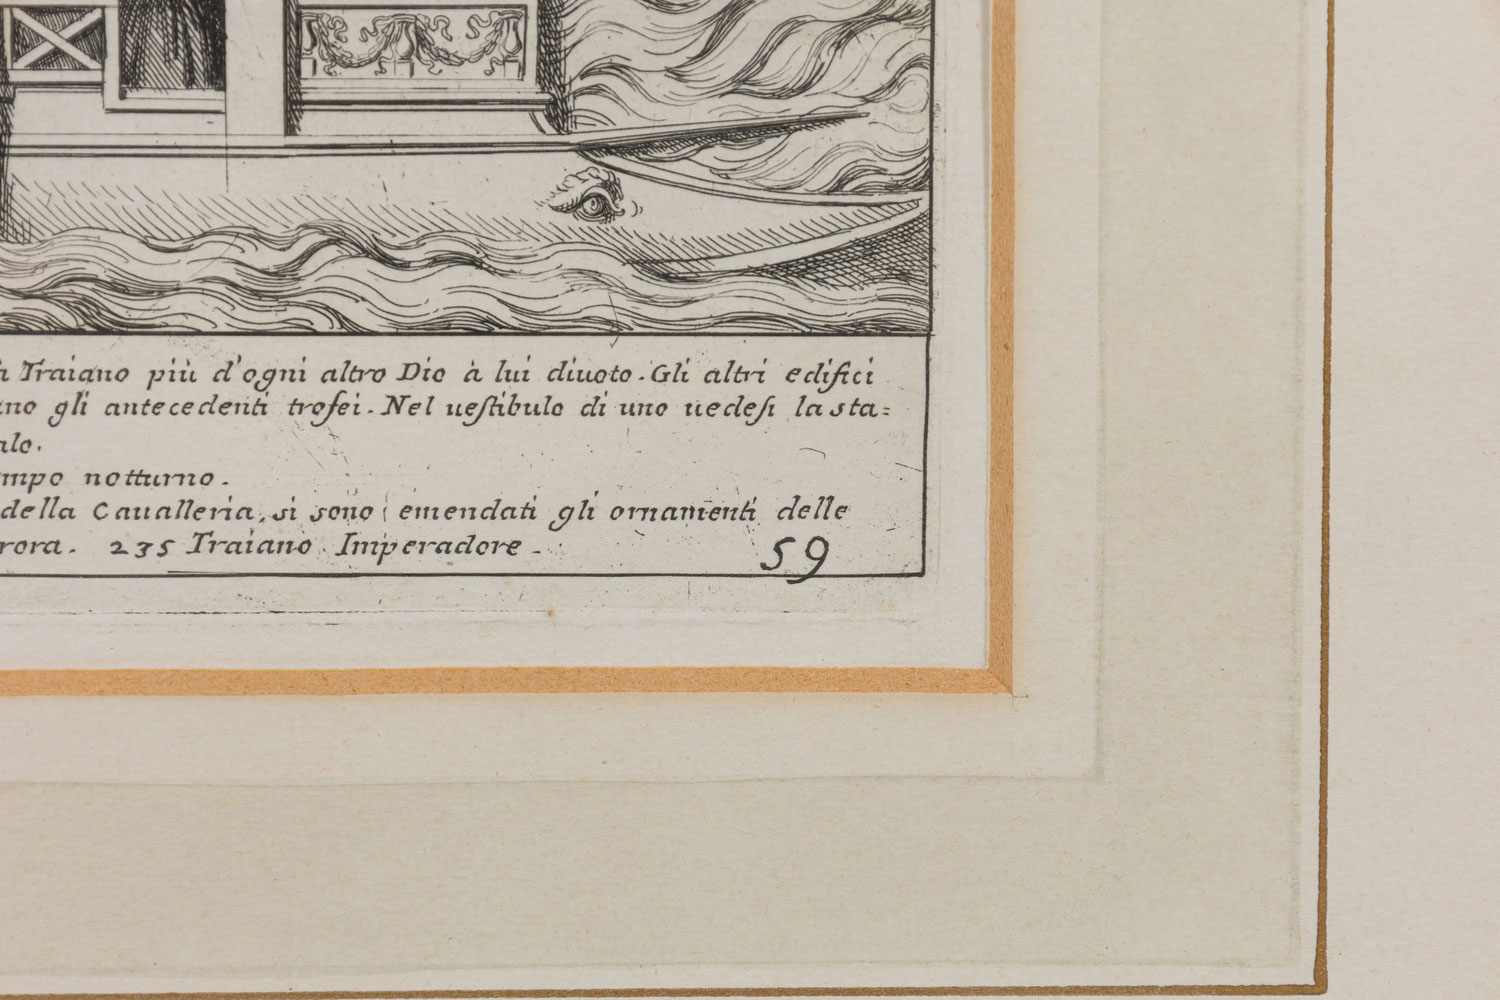 Traiano più d'ogni altro Dio à lui diuoto. Gli altri edifici
no gli antecedenti trofei. Nel uestibulo di uno uedesi la sta=
alo.
mpo notturno.
della Caualleria, si sono emendati gli ornamenti delle
rora. 235 Traiano Imperadore.
59